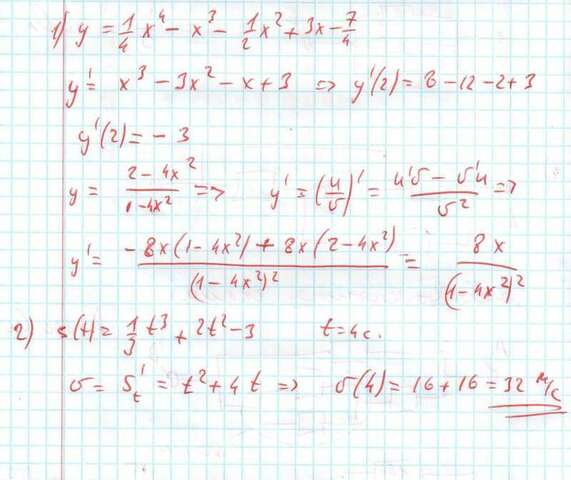 1) y = 1/4 x⁴ - x³ - 1/2 x² + 3x - 7/4
y' = x³ - 3x² - x + 3 => y'(2) = 8 - 12 - 2 + 3
y'(2) = - 3
y = (2 - 4x²)/(1 - 4x²) => y' = (u/v)' = (u'v - v'u)/v² =>
y' = (-8x(1 - 4x²) + 8x(2 - 4x²))/(1 - 4x²)² = 8x/(1 - 4x²)²
2) s(t) = 1/3 t³ + 2t² - 3 t = 4c.
v = S'ₜ = t² + 4t => v(4) = 16 + 16 = 32 м/с